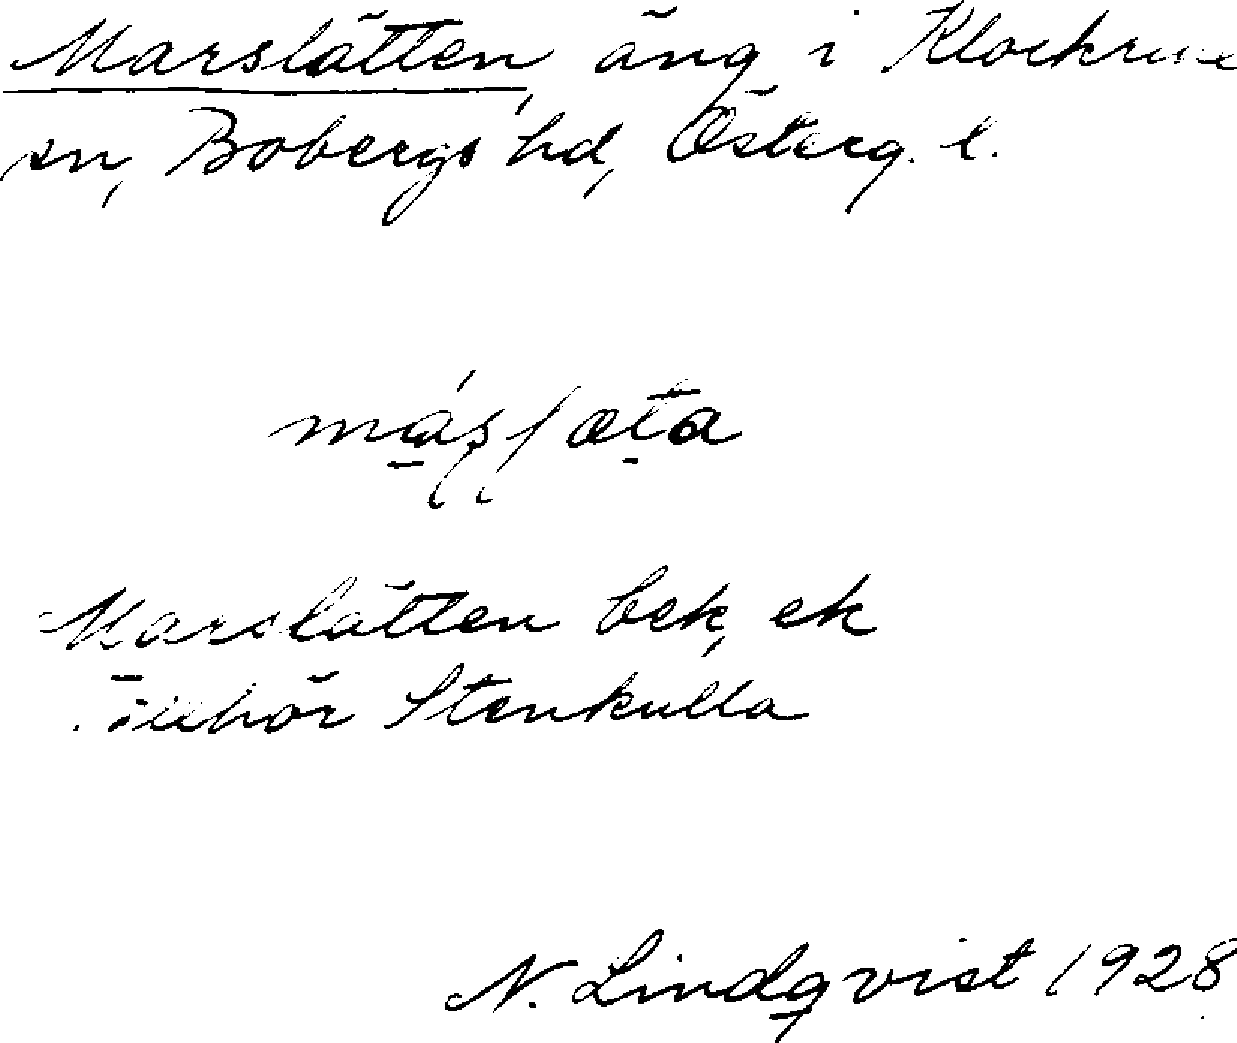 Marslätten, äng i Klockrike
sn, Bobergs hd, Österg. l.
Marslätten bek, ek
tillhör Stenkulla
N. Lindqvist 1928